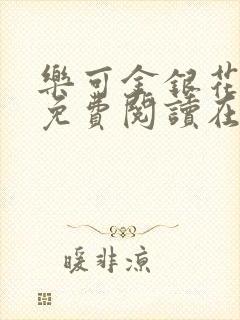 樂可金銀花
免費閱讀在
暖非凉